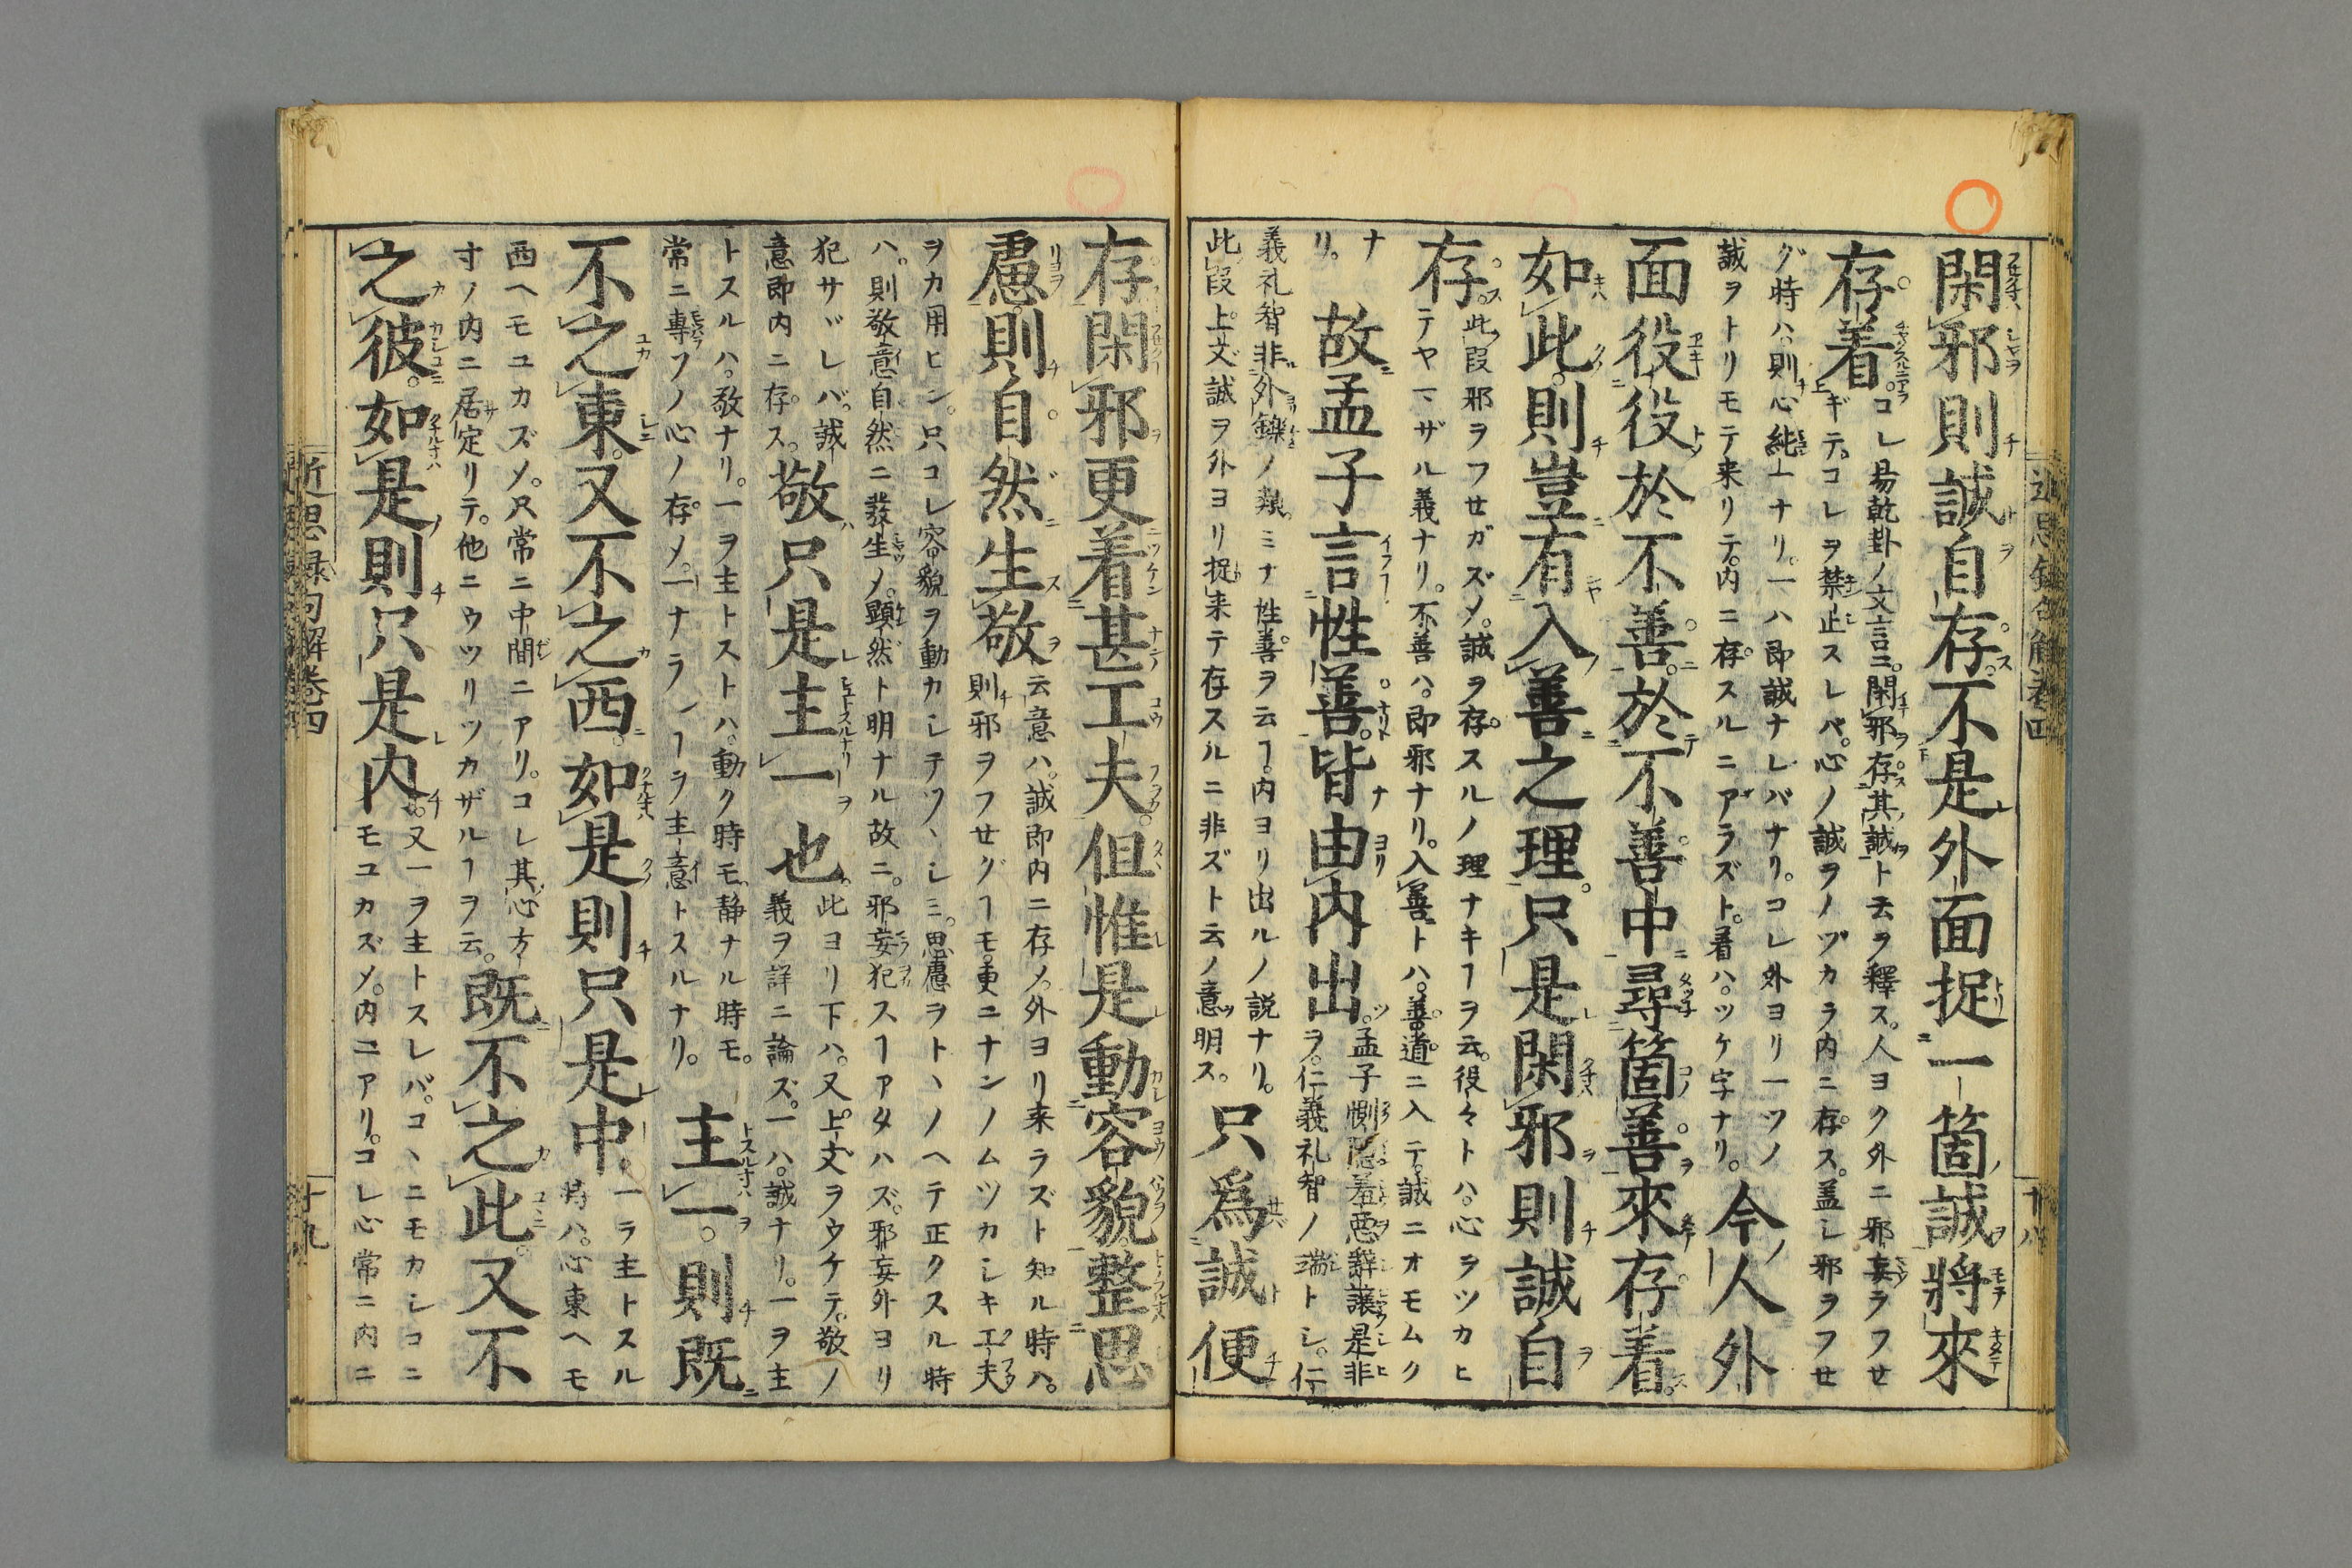 閑邪則誠自存。不是外面捉一箇誠將來
存着。コレ易乾卦ノ文言ニ。閑邪存其誠ト云ヲ釋ス。人ヨク外ニ邪妄ヲフセ
ギテ。コレヲ禁止スレバ。心ノ誠ヲノヅカラ内ニ存ス。蓋シ邪ヲフセ
グ時ハ。則心純一ナリ。一ハ即誠ナレバナリ。コレ外ヨリ一ツノ
誠ヲトリモテ来リテ。内ニ存スルニアラズト。着ハ。ツケ字ナリ。今人外
面役役於不善。於不善中尋箇善來存着。
如此。則豈有入善之理。只是閑邪則誠自
存。此段邪ヲフセガズメ。誠ヲ存スルノ理ナキヿヲ云。役々トハ。心ヲツカヒ
テヤマザル義ナリ。不善ハ。即邪ナリ。入善トハ。善道ニ入テ。誠ニオモムク
ナ
リ。故孟子言性善。皆由内出。孟子惻隠羞悪辭譲是非
ヲ。仁義礼智ノ端トシ。仁
義礼智非外鑠ノ類。ミナ性善ヲ云ヿ。内ヨリ出ルノ説ナリ。
此段上文誠ヲ外ヨリ捉来テ存スルニ非ズト云ノ意明ス。只爲誠便
存閑邪更着甚工夫。但惟是動容貌整思
慮。則自然生敬云意ハ。誠即内ニ存メ。外ヨリ来ラズト知ル時ハ。
則邪ヲフセグヿモ。更ニナンノムツカシキ工夫
ヲカ用ヒン。只コレ容貌ヲ動カシテツヽシミ。思慮ヲトヽノヘテ正クスル時
ハ。則敬意自然ニ發生メ。顕然ト明ナル故ニ。邪妄犯スヿアタハズ。邪妄外ヨリ
犯サヾレバ。誠
意即内ニ存ス。敬只是主一也。此ヨリ下ハ。又上文ヲウケテ。敬ノ
義ヲ詳ニ論ズ。一ハ。誠ナリ。一ヲ主
トスルハ。敬ナリ。一ヲ主トストハ。動ク時モ。静ナル時モ。
常ニ專ラノ心ノ存メ。一ナランヿヲ主意トスルナリ。主一。則既
不之東。又不之西。如是則只是中。一ヲ主トスル
時ハ。心東ヘモ
西ヘモユカズメ。只常ニ中間ニアリ。コレ其心方
寸ノ内ニ居定リテ。他ニウツリツカザルヿヲ云。既不之此。又不
之彼。如是則只是内。又一ヲ主トスレバ。コヽニモカシコニ
モユカズメ。内ニアリ。コレ心常ニ内ニ
近思録句解卷四
十九